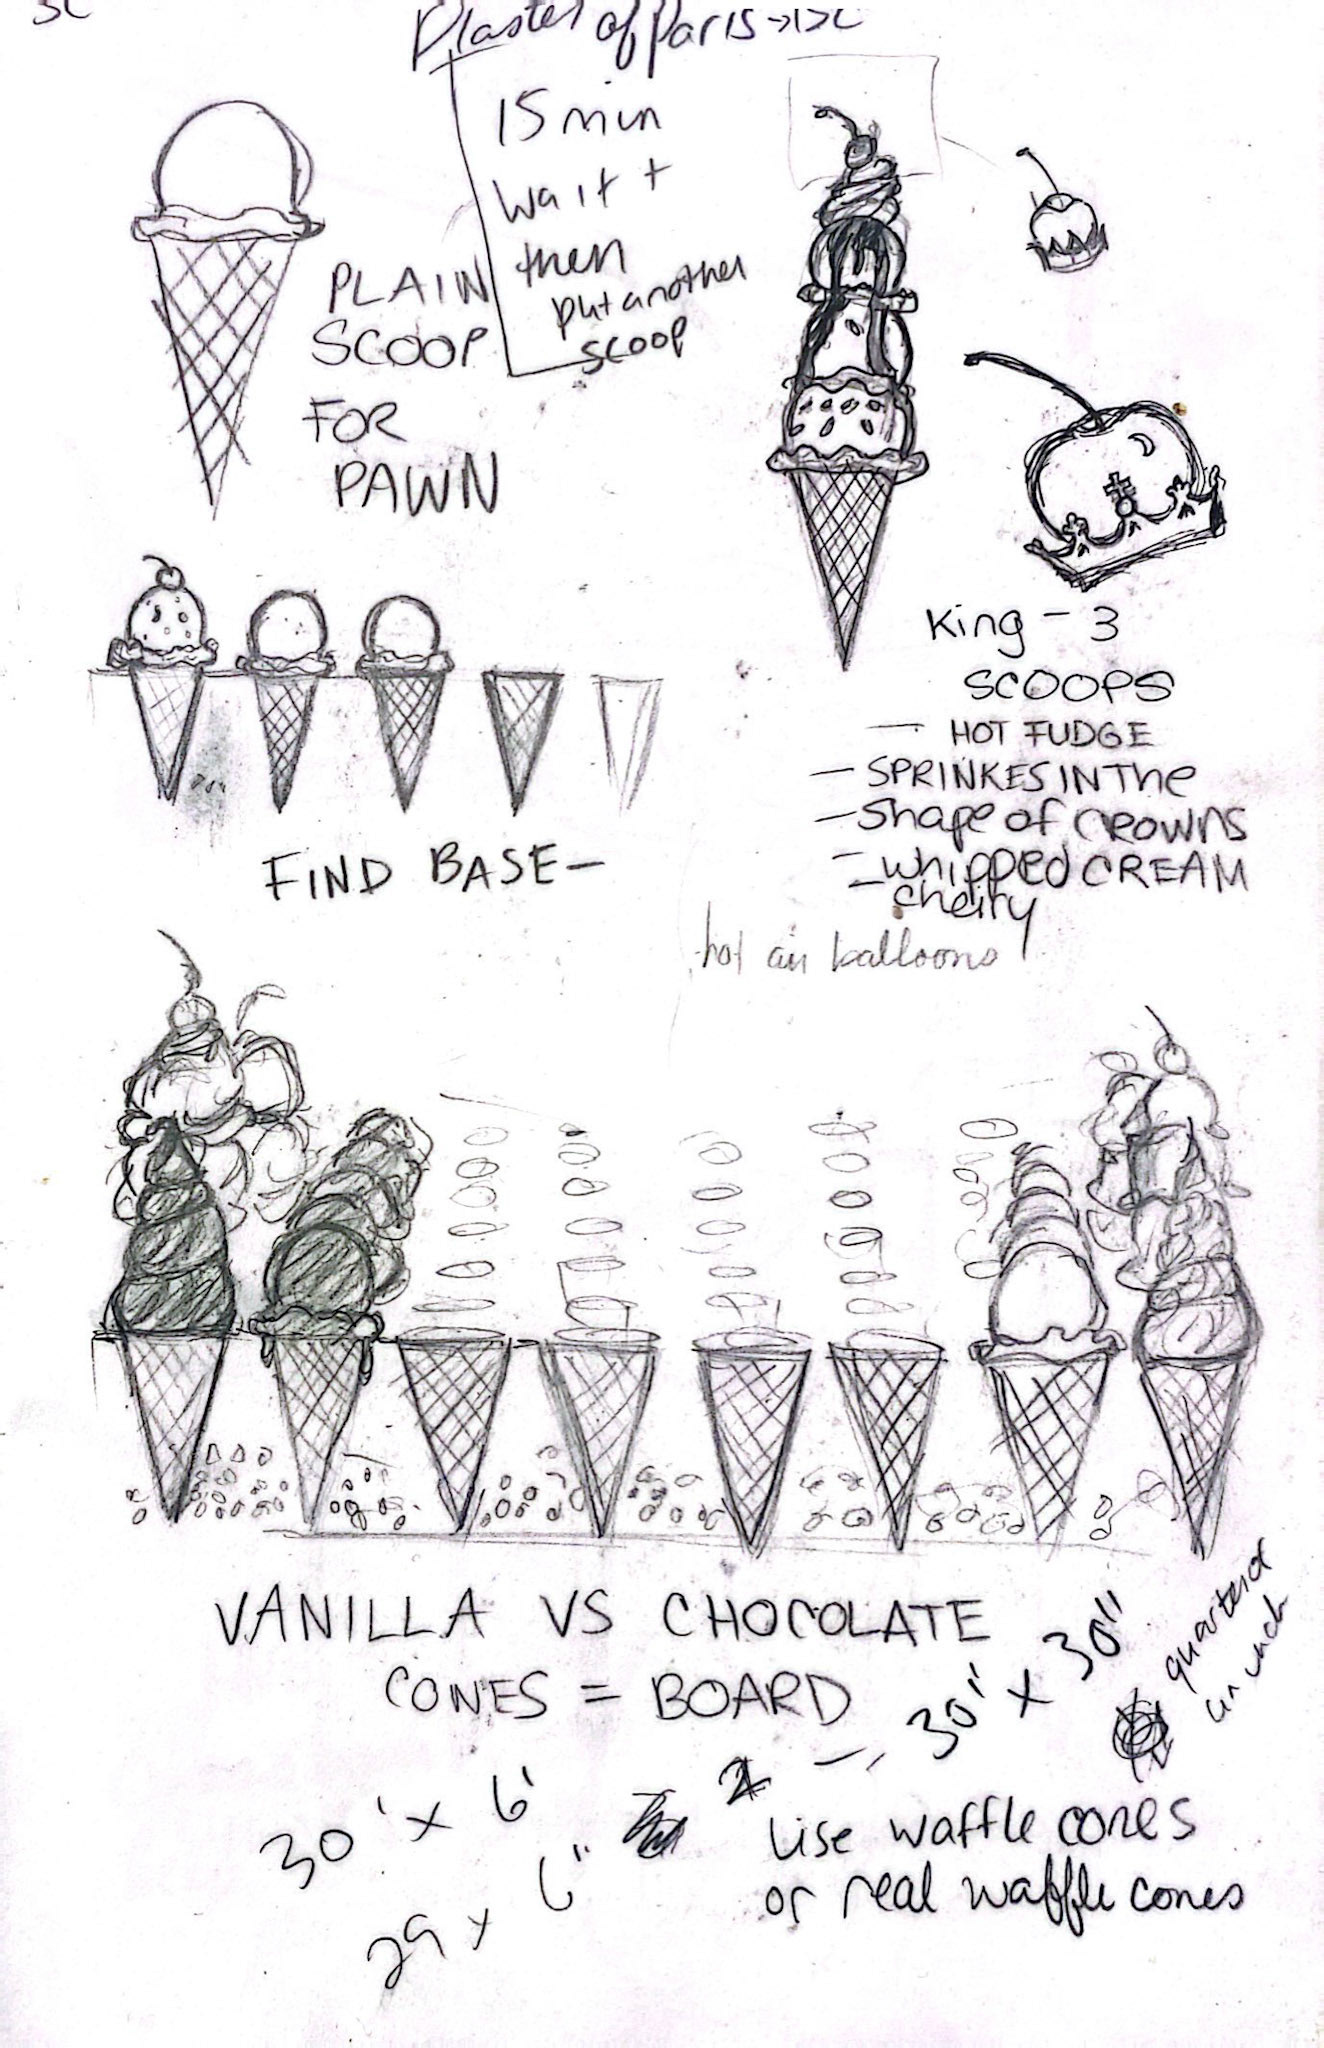 Plaster of Paris
15 min
wait +
then
put another
scoop
PLAIN
SCOOP
FOR
PAWN
King - 3
SCOOPS
- HOT FUDGE
- SPRINKES IN The
- Shape of CROWNS
- whipped CREAM
- cherry
FIND BASE -
hot air balloons
VANILLA VS CHOCOLATE
CONES = BOARD
30' x 6'
29 x 6"
30' x 30"
quarter of
an inch
Use waffle cones
or real waffle cones